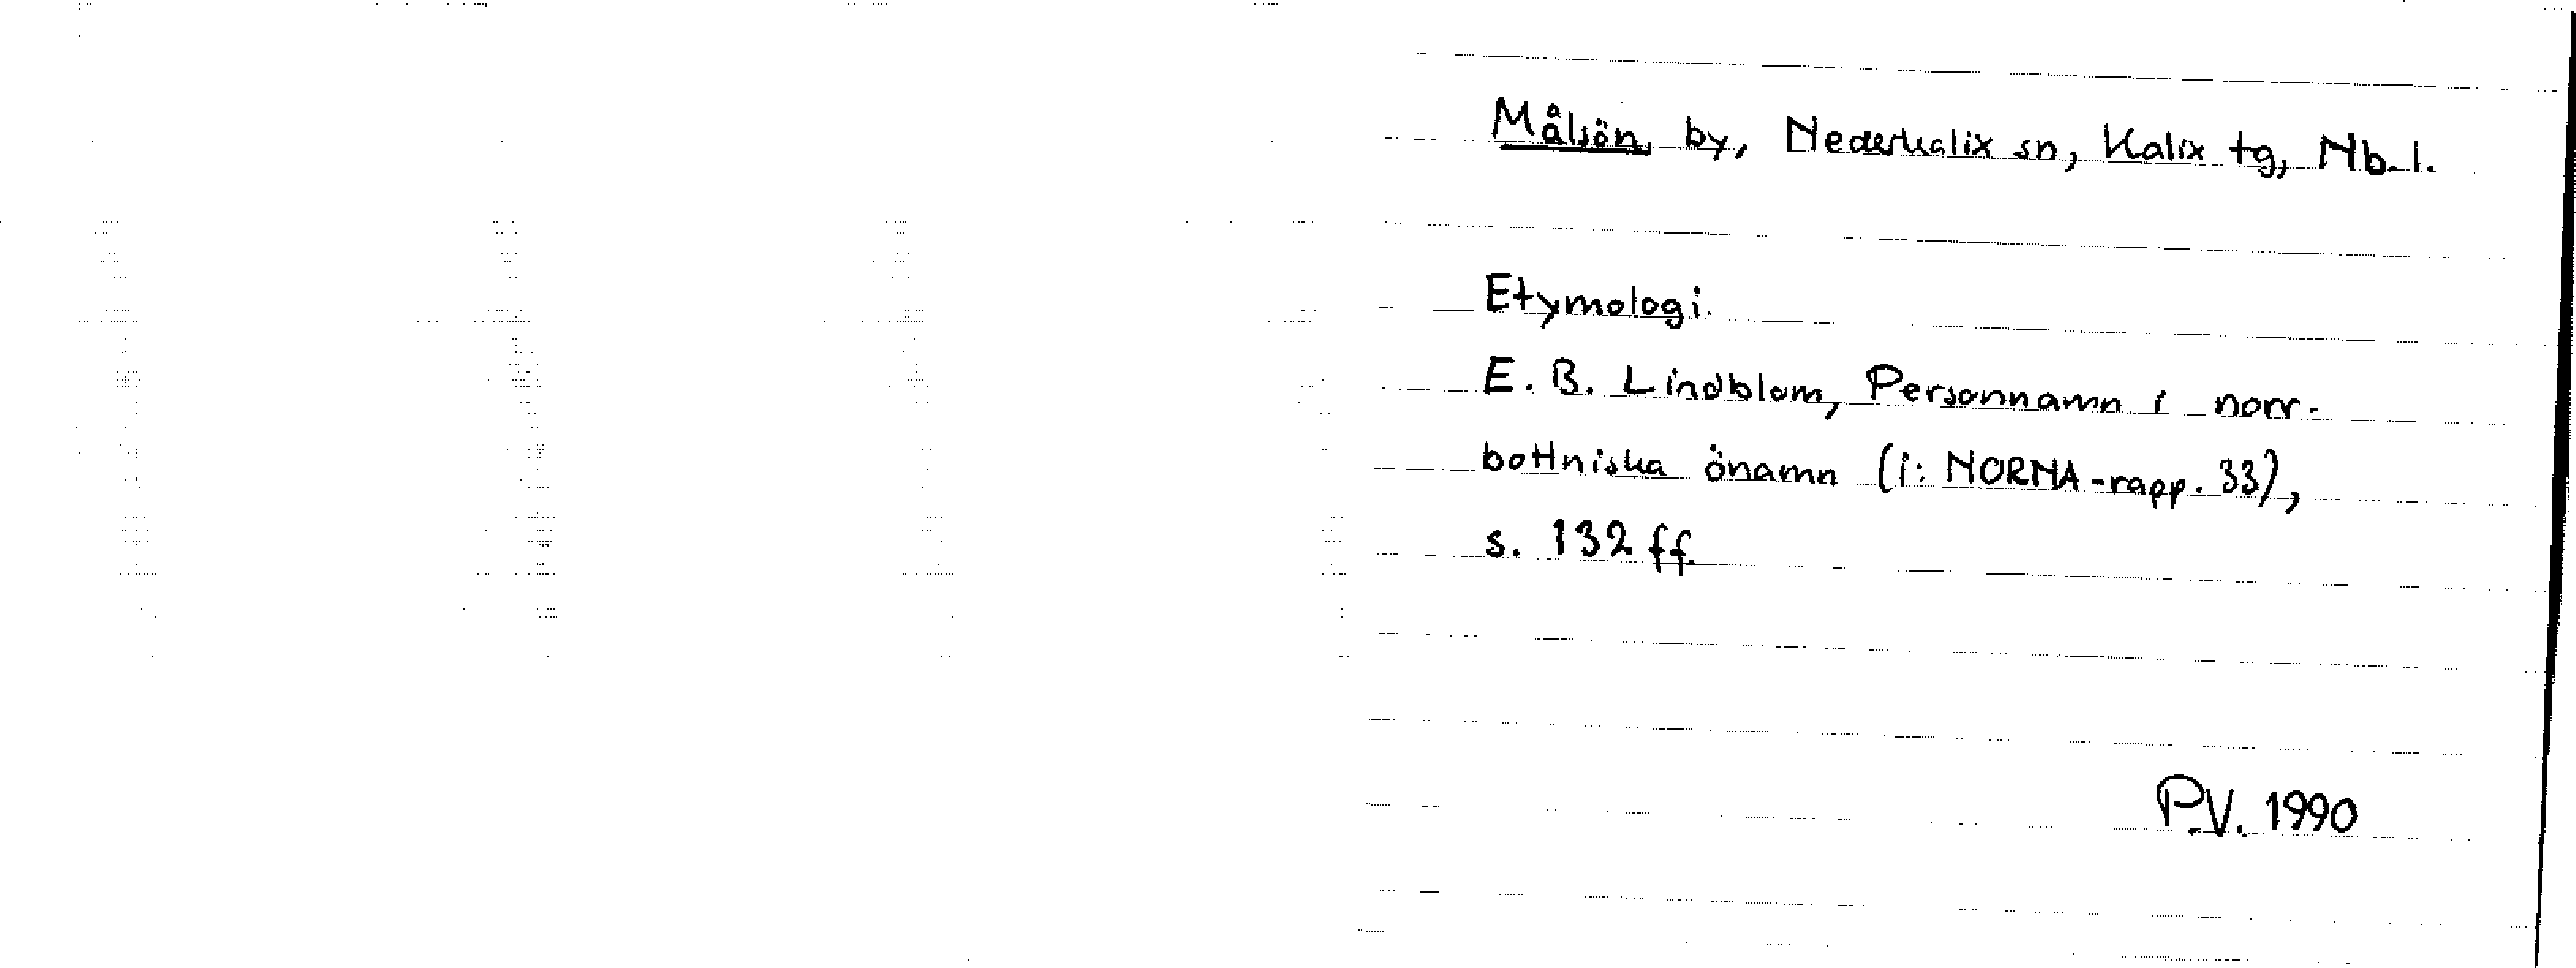 Målsön, by, Nederkalix sn, Kalix tg, Nb. l.
Etymologi.
E. B. Lindblom, Personnamn i norr-
bottniska önamn (i: NORNA-rapp. 33),
s. 132 ff.
P.V. 1990